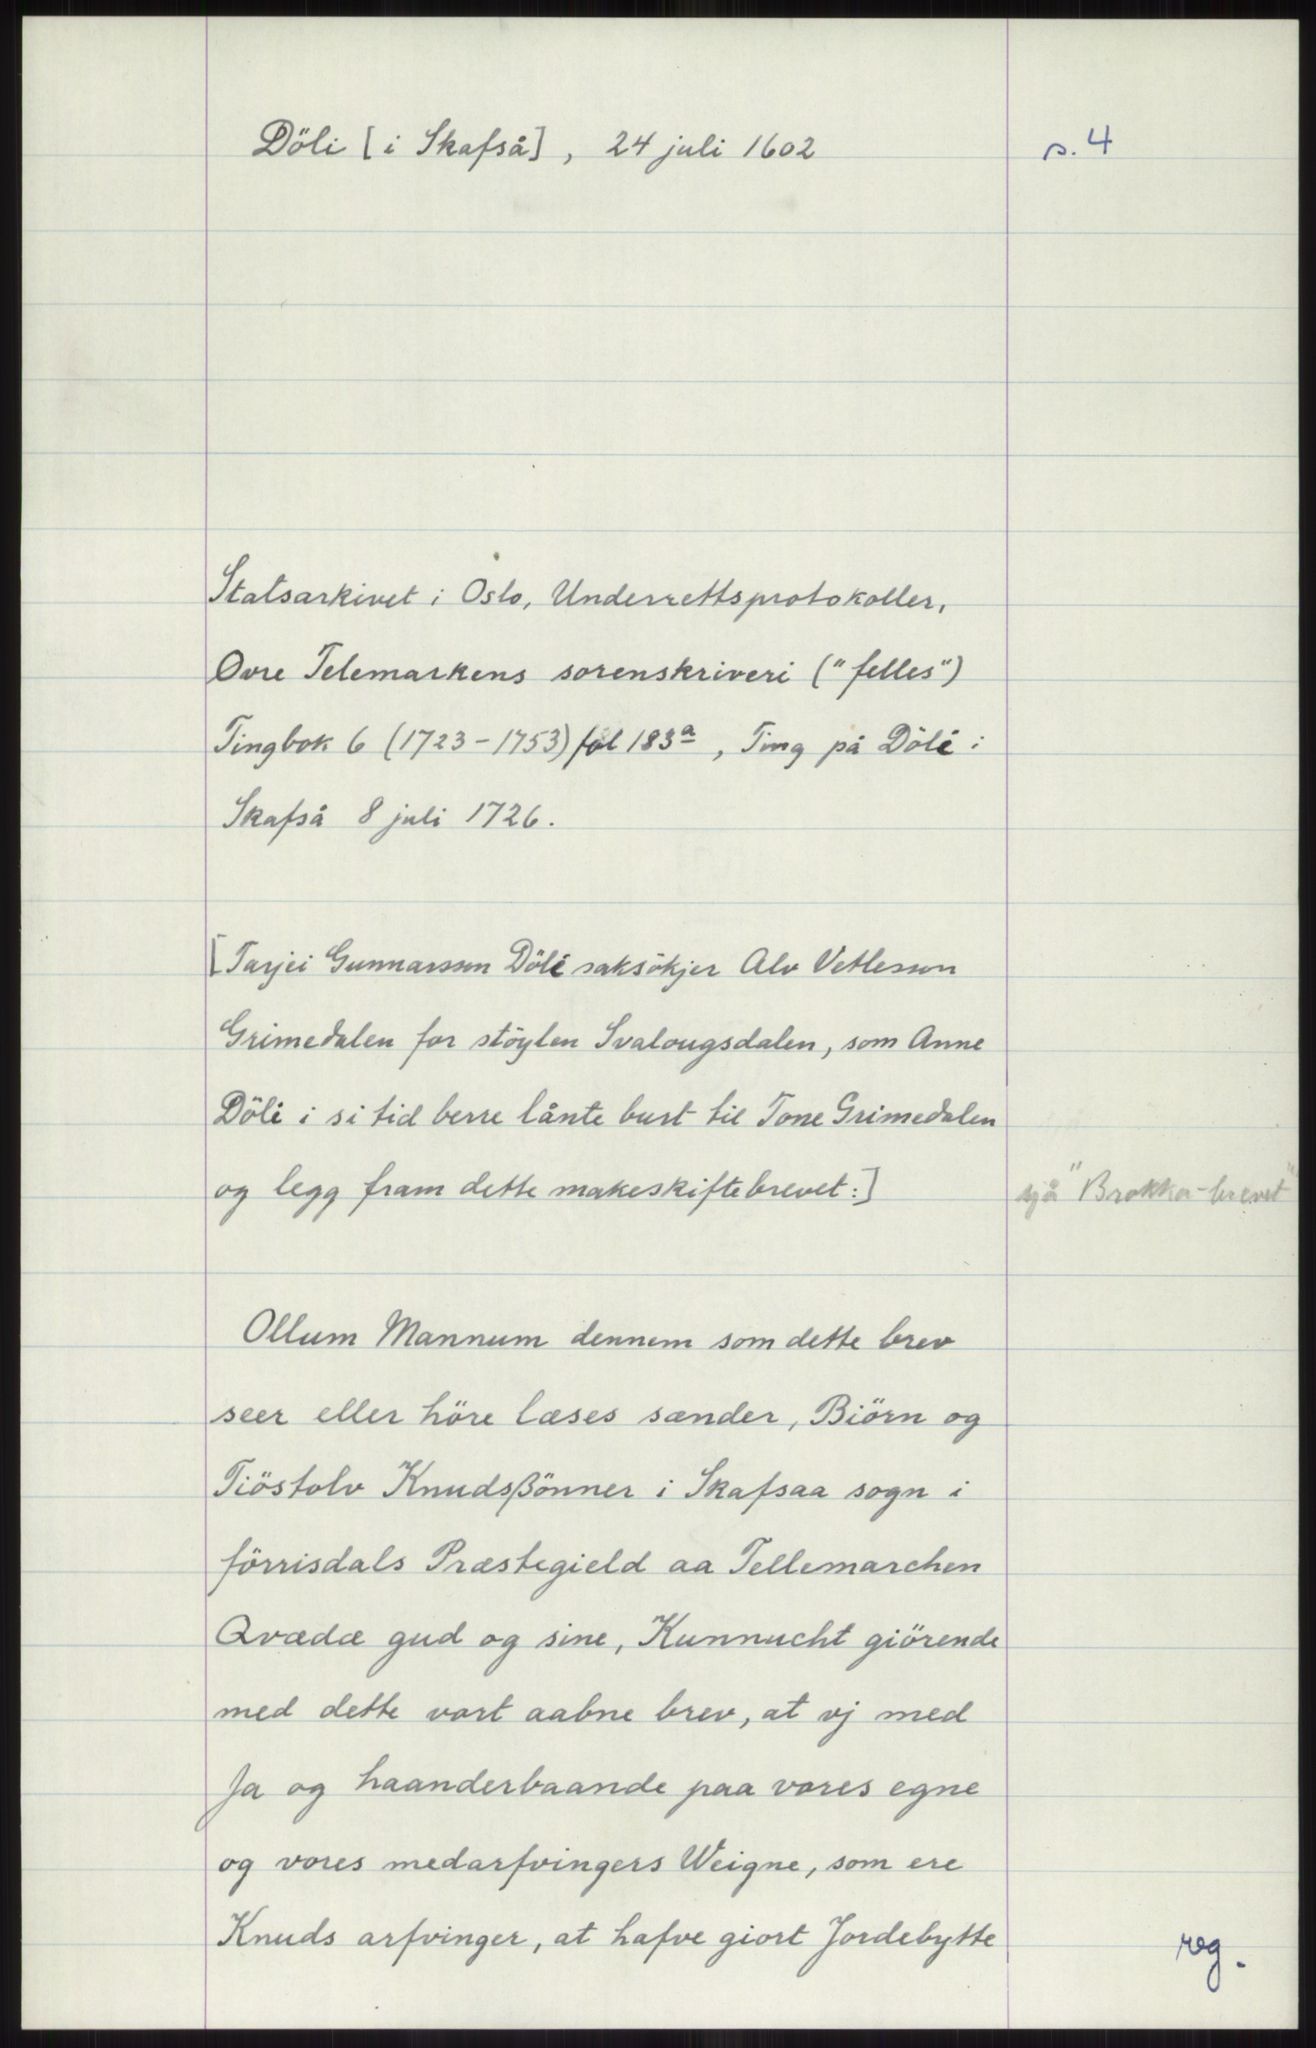 Döli [i Skafså], 24 juli 1602
s. 4
Statsarkivet i Oslo, Underrettsprotokoller,
Ovre Telemarkens sorenskriveri ("felles")
Tingbok 6 (1723-1753) fol 183a, Ting på Döli i
Skafså 8 juli 1726.
[Tarjei Gunnarsson Döli saksökjer Alv Vetlesson
Grimedalen for stöylen Svalougsdalen, som Anne
Döli i si tid berre lånte burt til Tone Grimedalen
og legg fram dette makeskiftebrevet:]
sjå "Brokka-brevet"
Ollum Mannum dennem som dette brev
seer eller höre læses sænder, Biörn og
Tiöstolv Knudsßönner i Skafsaa sogn i
förrisdals Præstegield aa Tellemarchen
Qvædæ gud og sine, Kunnucht giörende
med dette vort aabne brev, at vj med
Ja og haanderbaande paa vores egne
og vores medarfvingers Weigne, som ere
Knuds arfvinger, at hafve giort Jordebytte
reg.